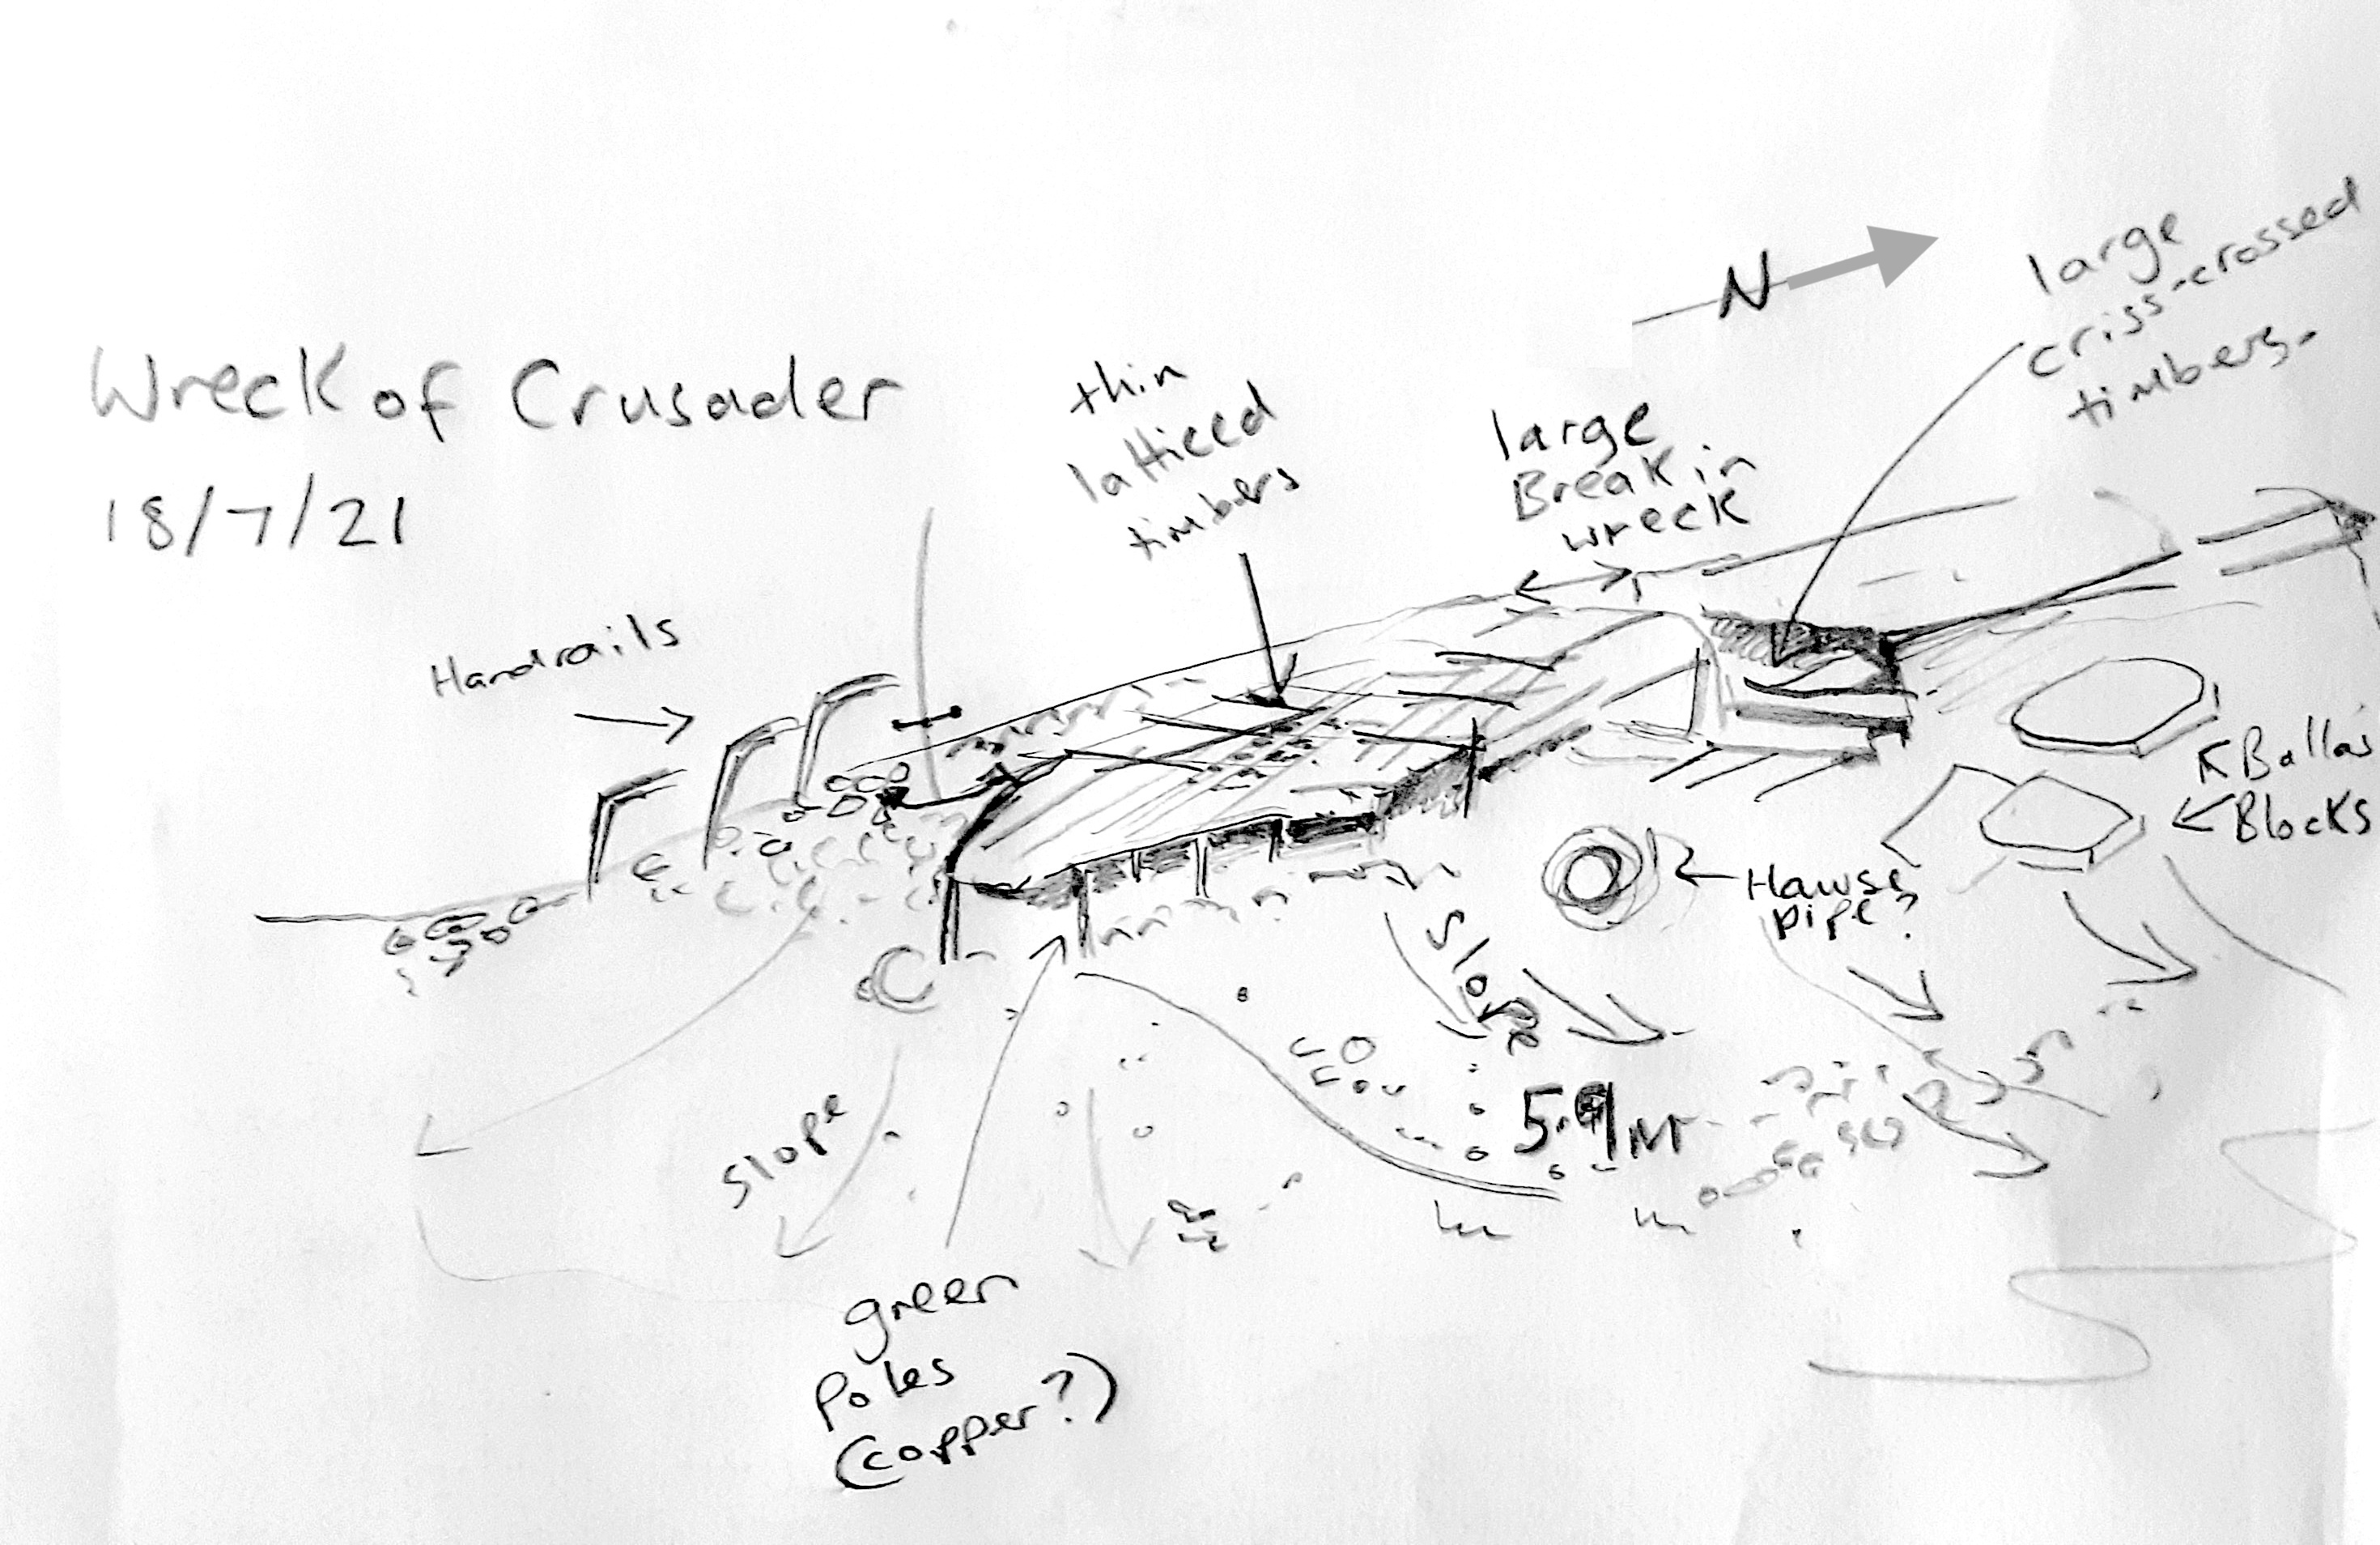 Wreck of Crusader
18/7/21
N
large
criss-crossed
timbers.
thin
latticed
timbers
large
Break in
wreck
Handrails
Ballas
Blocks
Hawse
pipe?
Slope
5.9M
Slope
green
Poles
(copper?)